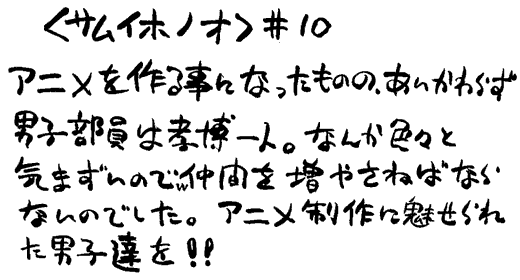 ＜サムイホノオ＞＃10
アニメを作る事になったものの、あいかわらず
男子部員は孝博一人。なんか色々と
気まずいので仲間を増やさねばなら
ないのでした。アニメ制作に魅せられ
た男子達を!!